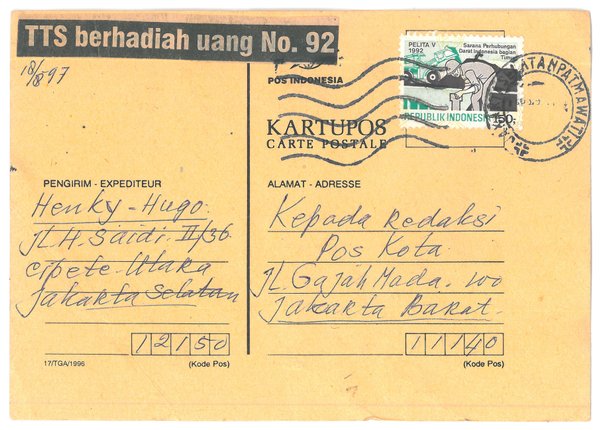 TTS berhadiah uang No. 92
18/8 97
POS INDONESIA
PELITA V
1992
Sarana Perhubungan
Darat Indonesia bagian
Timur
REPUBLIK INDONESIA
150,-
KARTUPOS
CARTE POSTALE
PENGIRIM - EXPEDITEUR
Henky - Hugo.
JL. H. Saidi. II/36
Cipete - Utara
Jakarta Selatan
12150
17/TGA/1996
(Kode Pos)
ALAMAT - ADRESSE
Kepada Redaksi
Pos Kota.
JL. Gajah Mada. 100
Jakarta Barat.
11140
(Kode Pos)